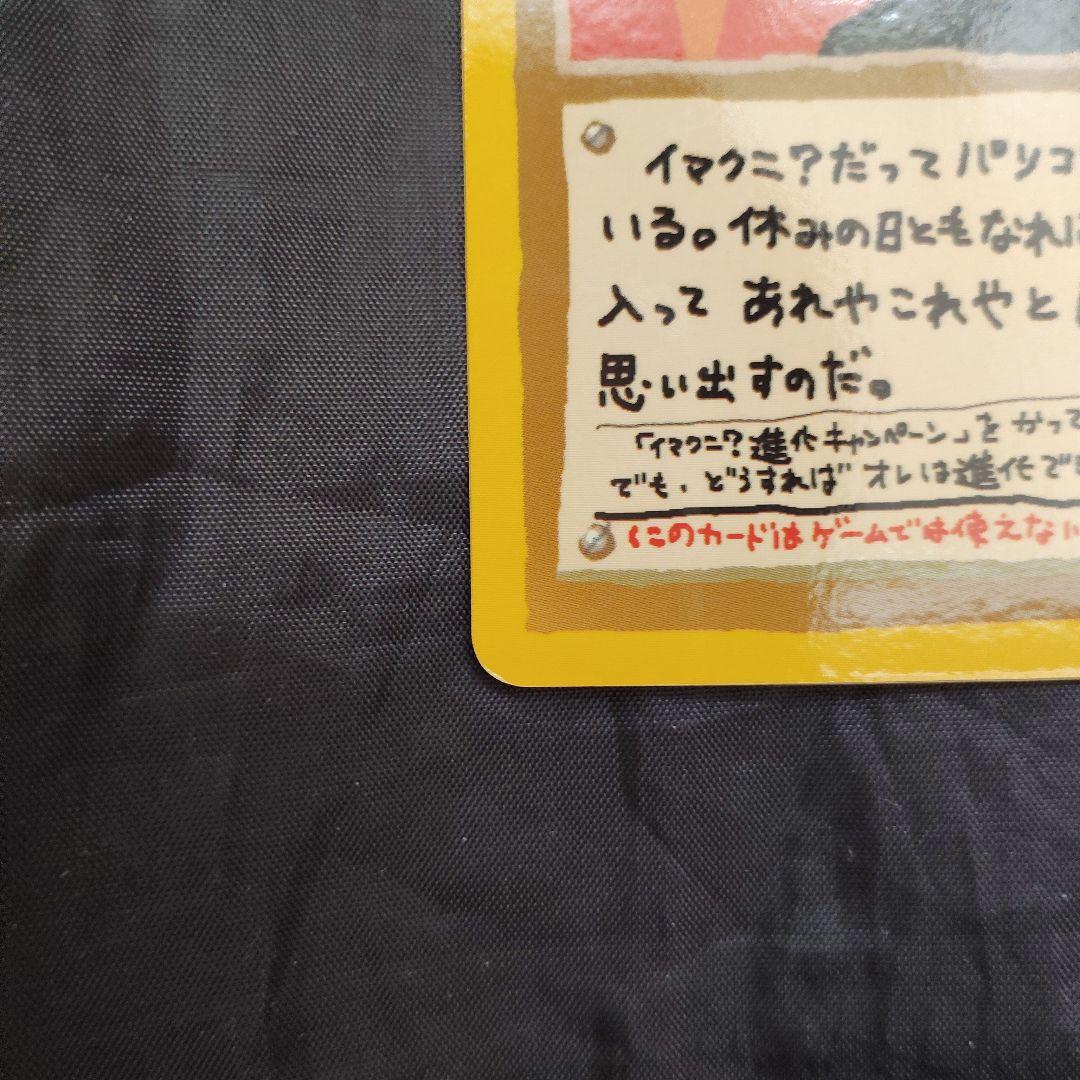 イマクニ?だってパソコ
いる。休みの日ともなれば
入って あれやこれやと
思い出すのだ。
「イマクニ?進化キャンペーン」をかって
でも、どうすれば オレは進化で
(このカードはゲームでは使えない